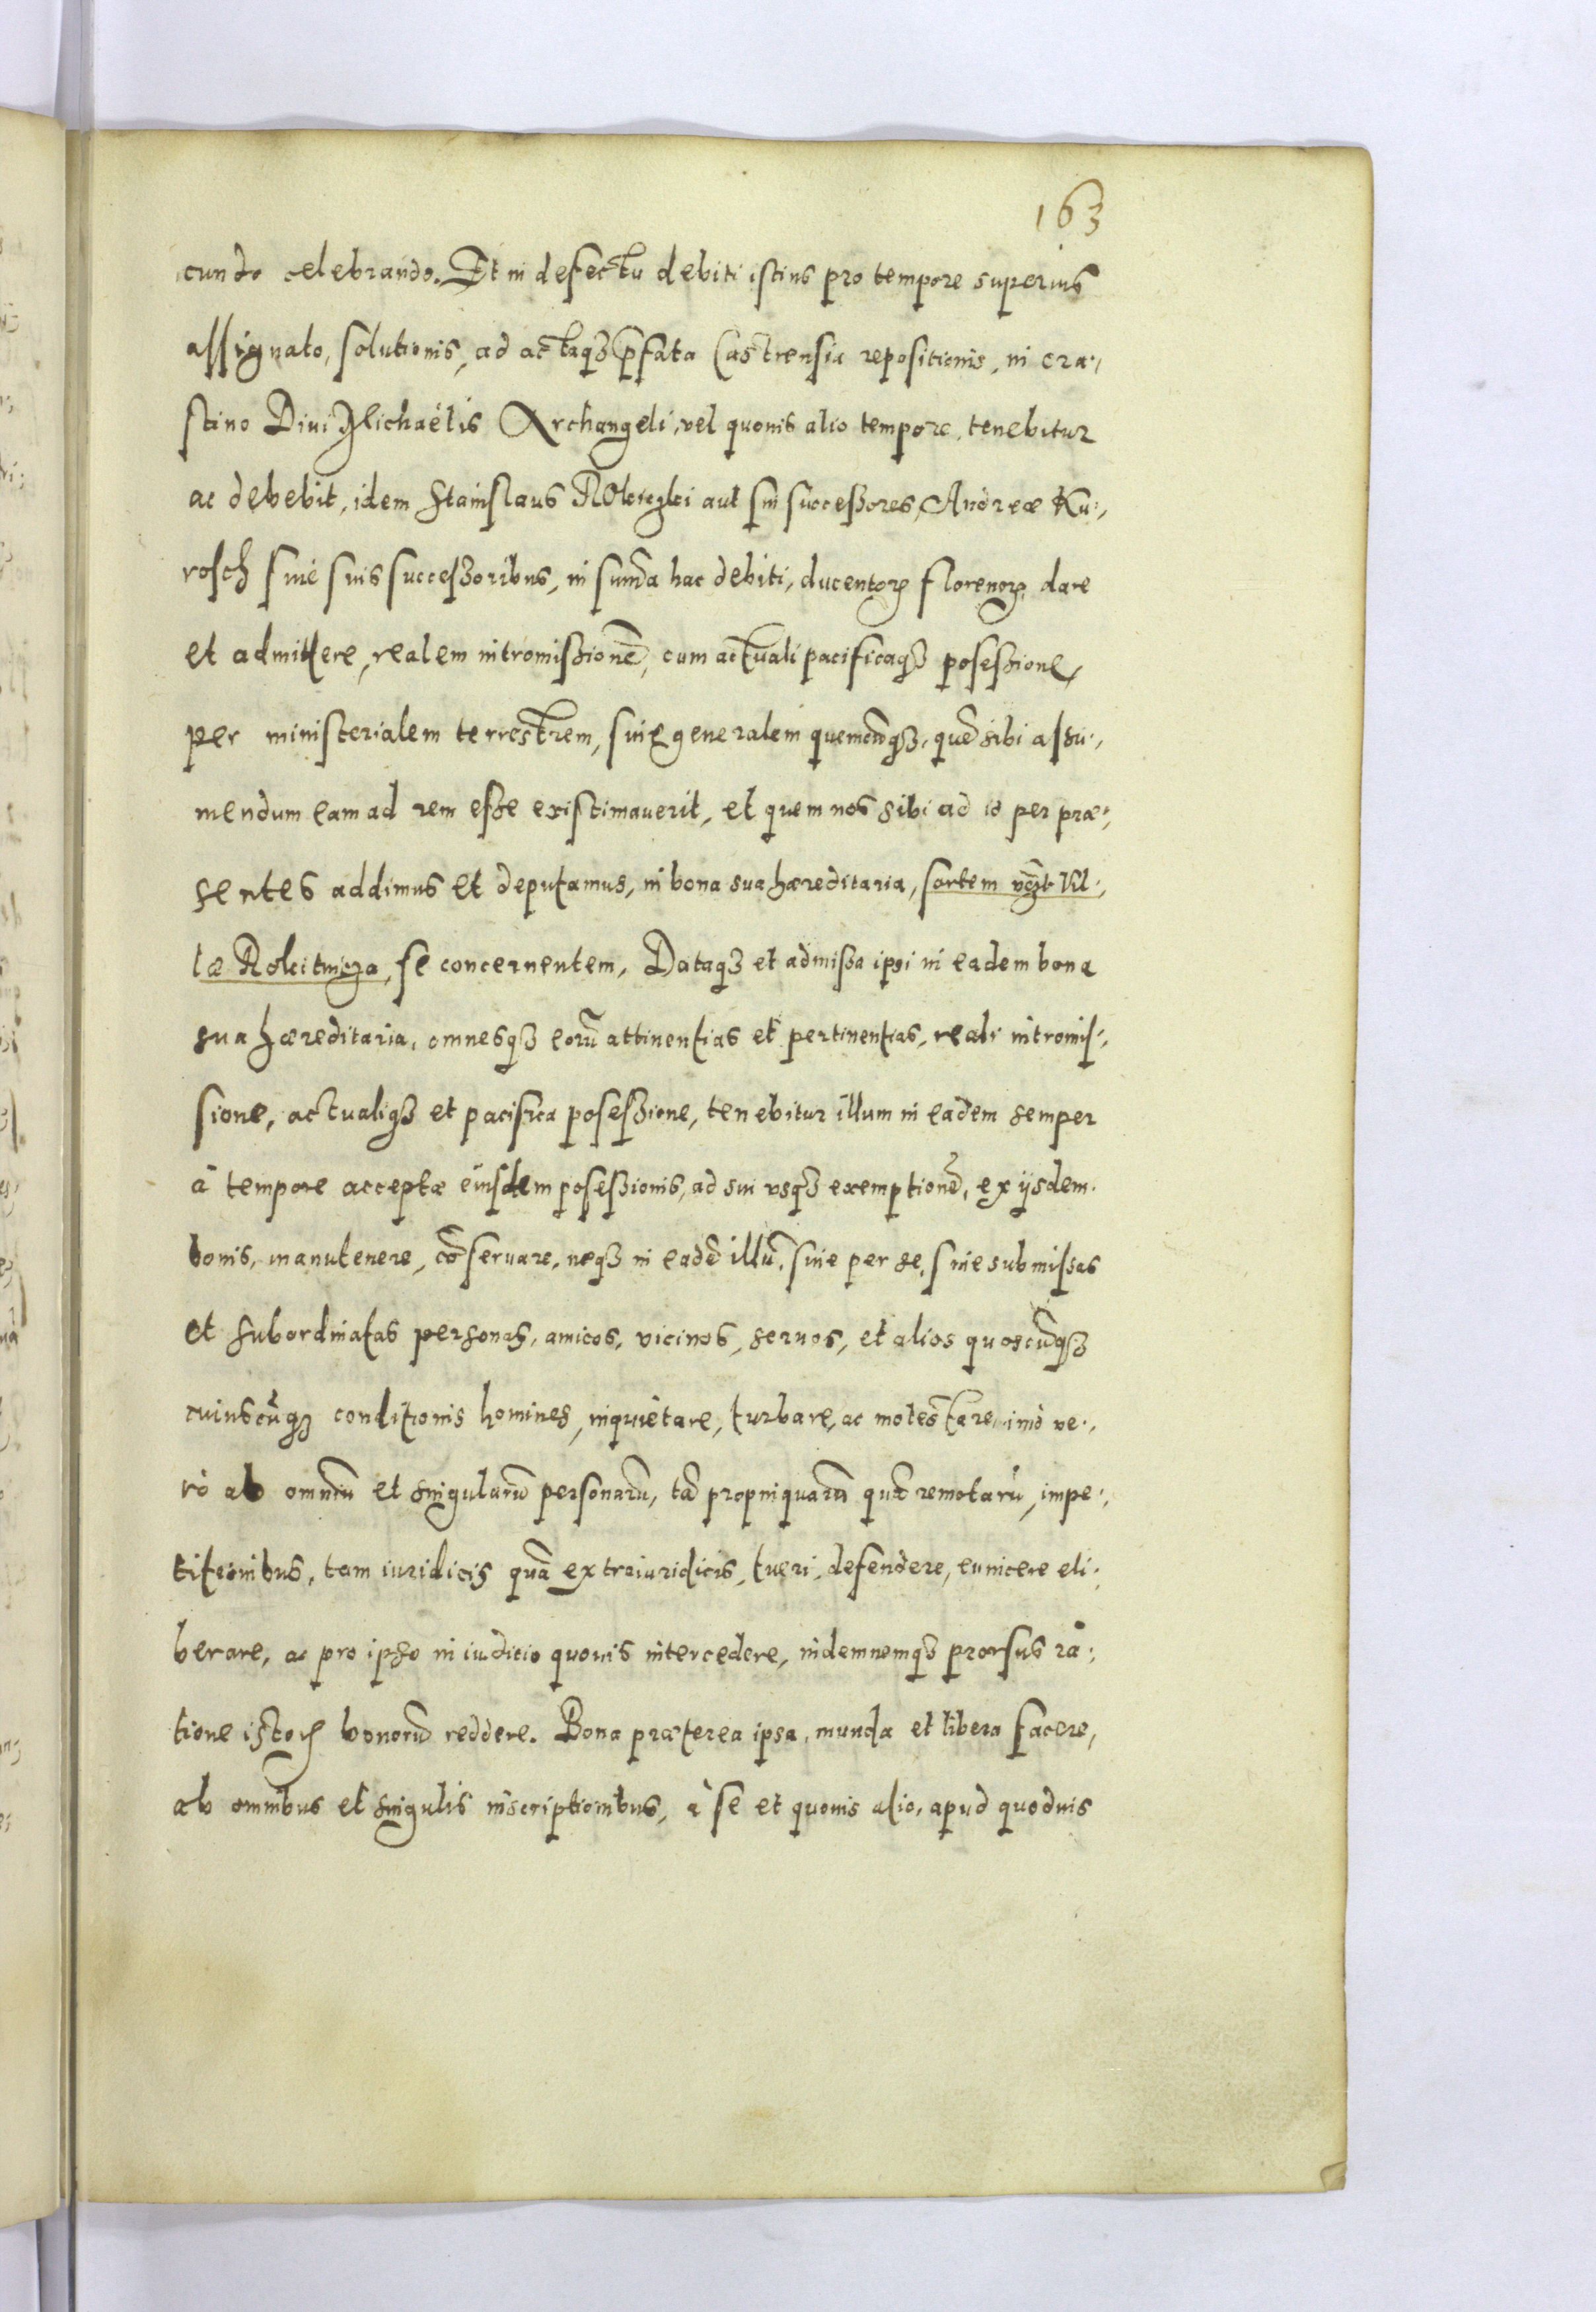 163
cundo celebrando. Et in defectu debiti istius pro tempore superius
assignato, solutionis, ad actaqꝫ p̄fata Castrensia repositionis, in cra:,
stino Diui Michaëlis Archangeli, vel quouis alio tempore, tenebitur
ac debebit, idem Stanislaus aut sui succeßores, Andreæ Ku:,
rosch siue suis succeßoribus, in sum̄a hac debiti, ducentoꝝ florenoꝝ, dare
et admittere, realem intromißionē, cum actuali pacificaqꝫ poseßione,
per ministerialem terrestrem, siue generalem quemcūqꝫ, quē sibi assu:,
mendum eam ad rem eße existimauerit, et quem nos sibi ad id per præ:,
sentes addimus et deputamus, in bona sua hæreditaria, sortem Vil:,
læ Rokitnicza, se concernentem, Dataqꝫ et admißa ipsi in eadem bona
sua hæreditaria, omnesqꝫ eorū attinentias et pertinentias, reali intromis:,
sione, actualiqꝫ et pacifica poseßione, tenebitur illum in eadem semper
à tempore acceptæ eiusdem poseßionis, ad sui vsqꝫ exemptionē, ex ijsdem
bonis, manutenere, cōseruare, neqꝫ in eadē illū, siue per se, siue submißas
et subordinatas personas, amicos, vicinos, seruos, et alios quoscūqꝫ
cuiuscūqꝫ conditionis homines, inquietare, turbare, ac molestare, imò ve:,
rò ab omniū et singularū personarū, tā propinquarū quā remotarū, impe:,
titionibus, tam iuridicis quā extraiuridicis, tueri, defendere, euincere eli:,
berare, ac pro ipso in iudicio quouis intercedere, indemnemqꝫ prorsus ra:,
tione istoꝝ bonorū reddere. Bona præterea ipsa, munda et libera facere,
ab omnibus et singulis inscriptionibus, à se et quouis alio, apud quoduis